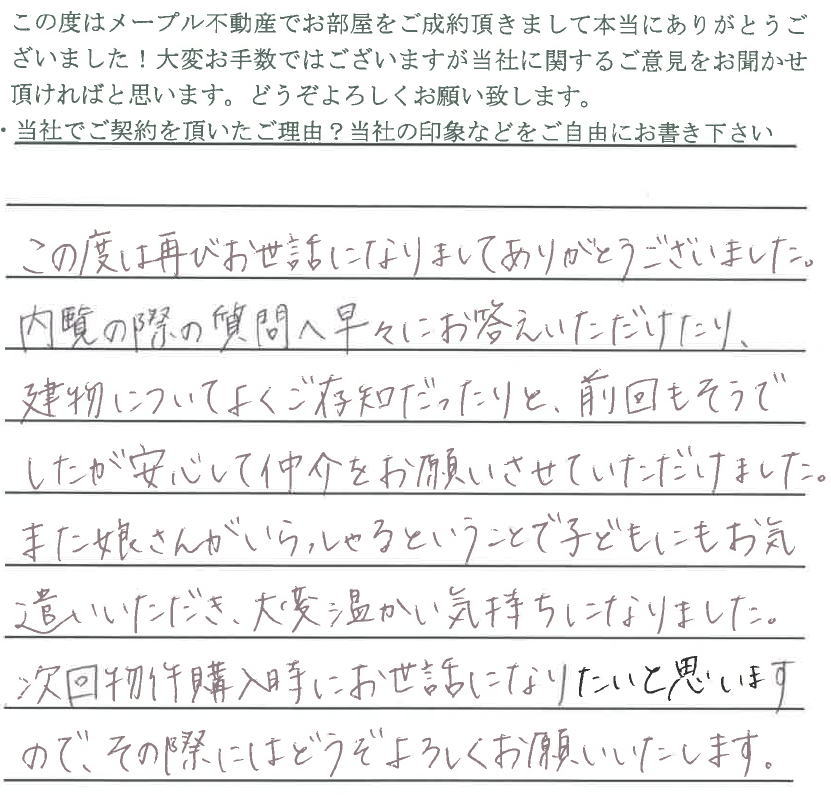 この度はメープル不動産でお部屋をご成約頂きまして本当にありがとうご
ざいました！大変お手数ではございますが当社に関するご意見をお聞かせ
頂ければと思います。どうぞよろしくお願い致します。
・当社でご契約を頂いたご理由？当社の印象などをご自由にお書き下さい
この度は再びお世話になりましてありがとうございました。
内覧の際の質問へ早々にお答えいただけたり、
建物についてよくご存知だったりと、前回もそうで
したが安心して仲介をお願いさせていただけました。
また娘さんがいらっしゃるということで子どもにもお気
遣いいただき、大変温かい気持ちになりました。
次回物件購入時にお世話になりたいと思います
ので、その際にはどうぞよろしくお願いいたします。